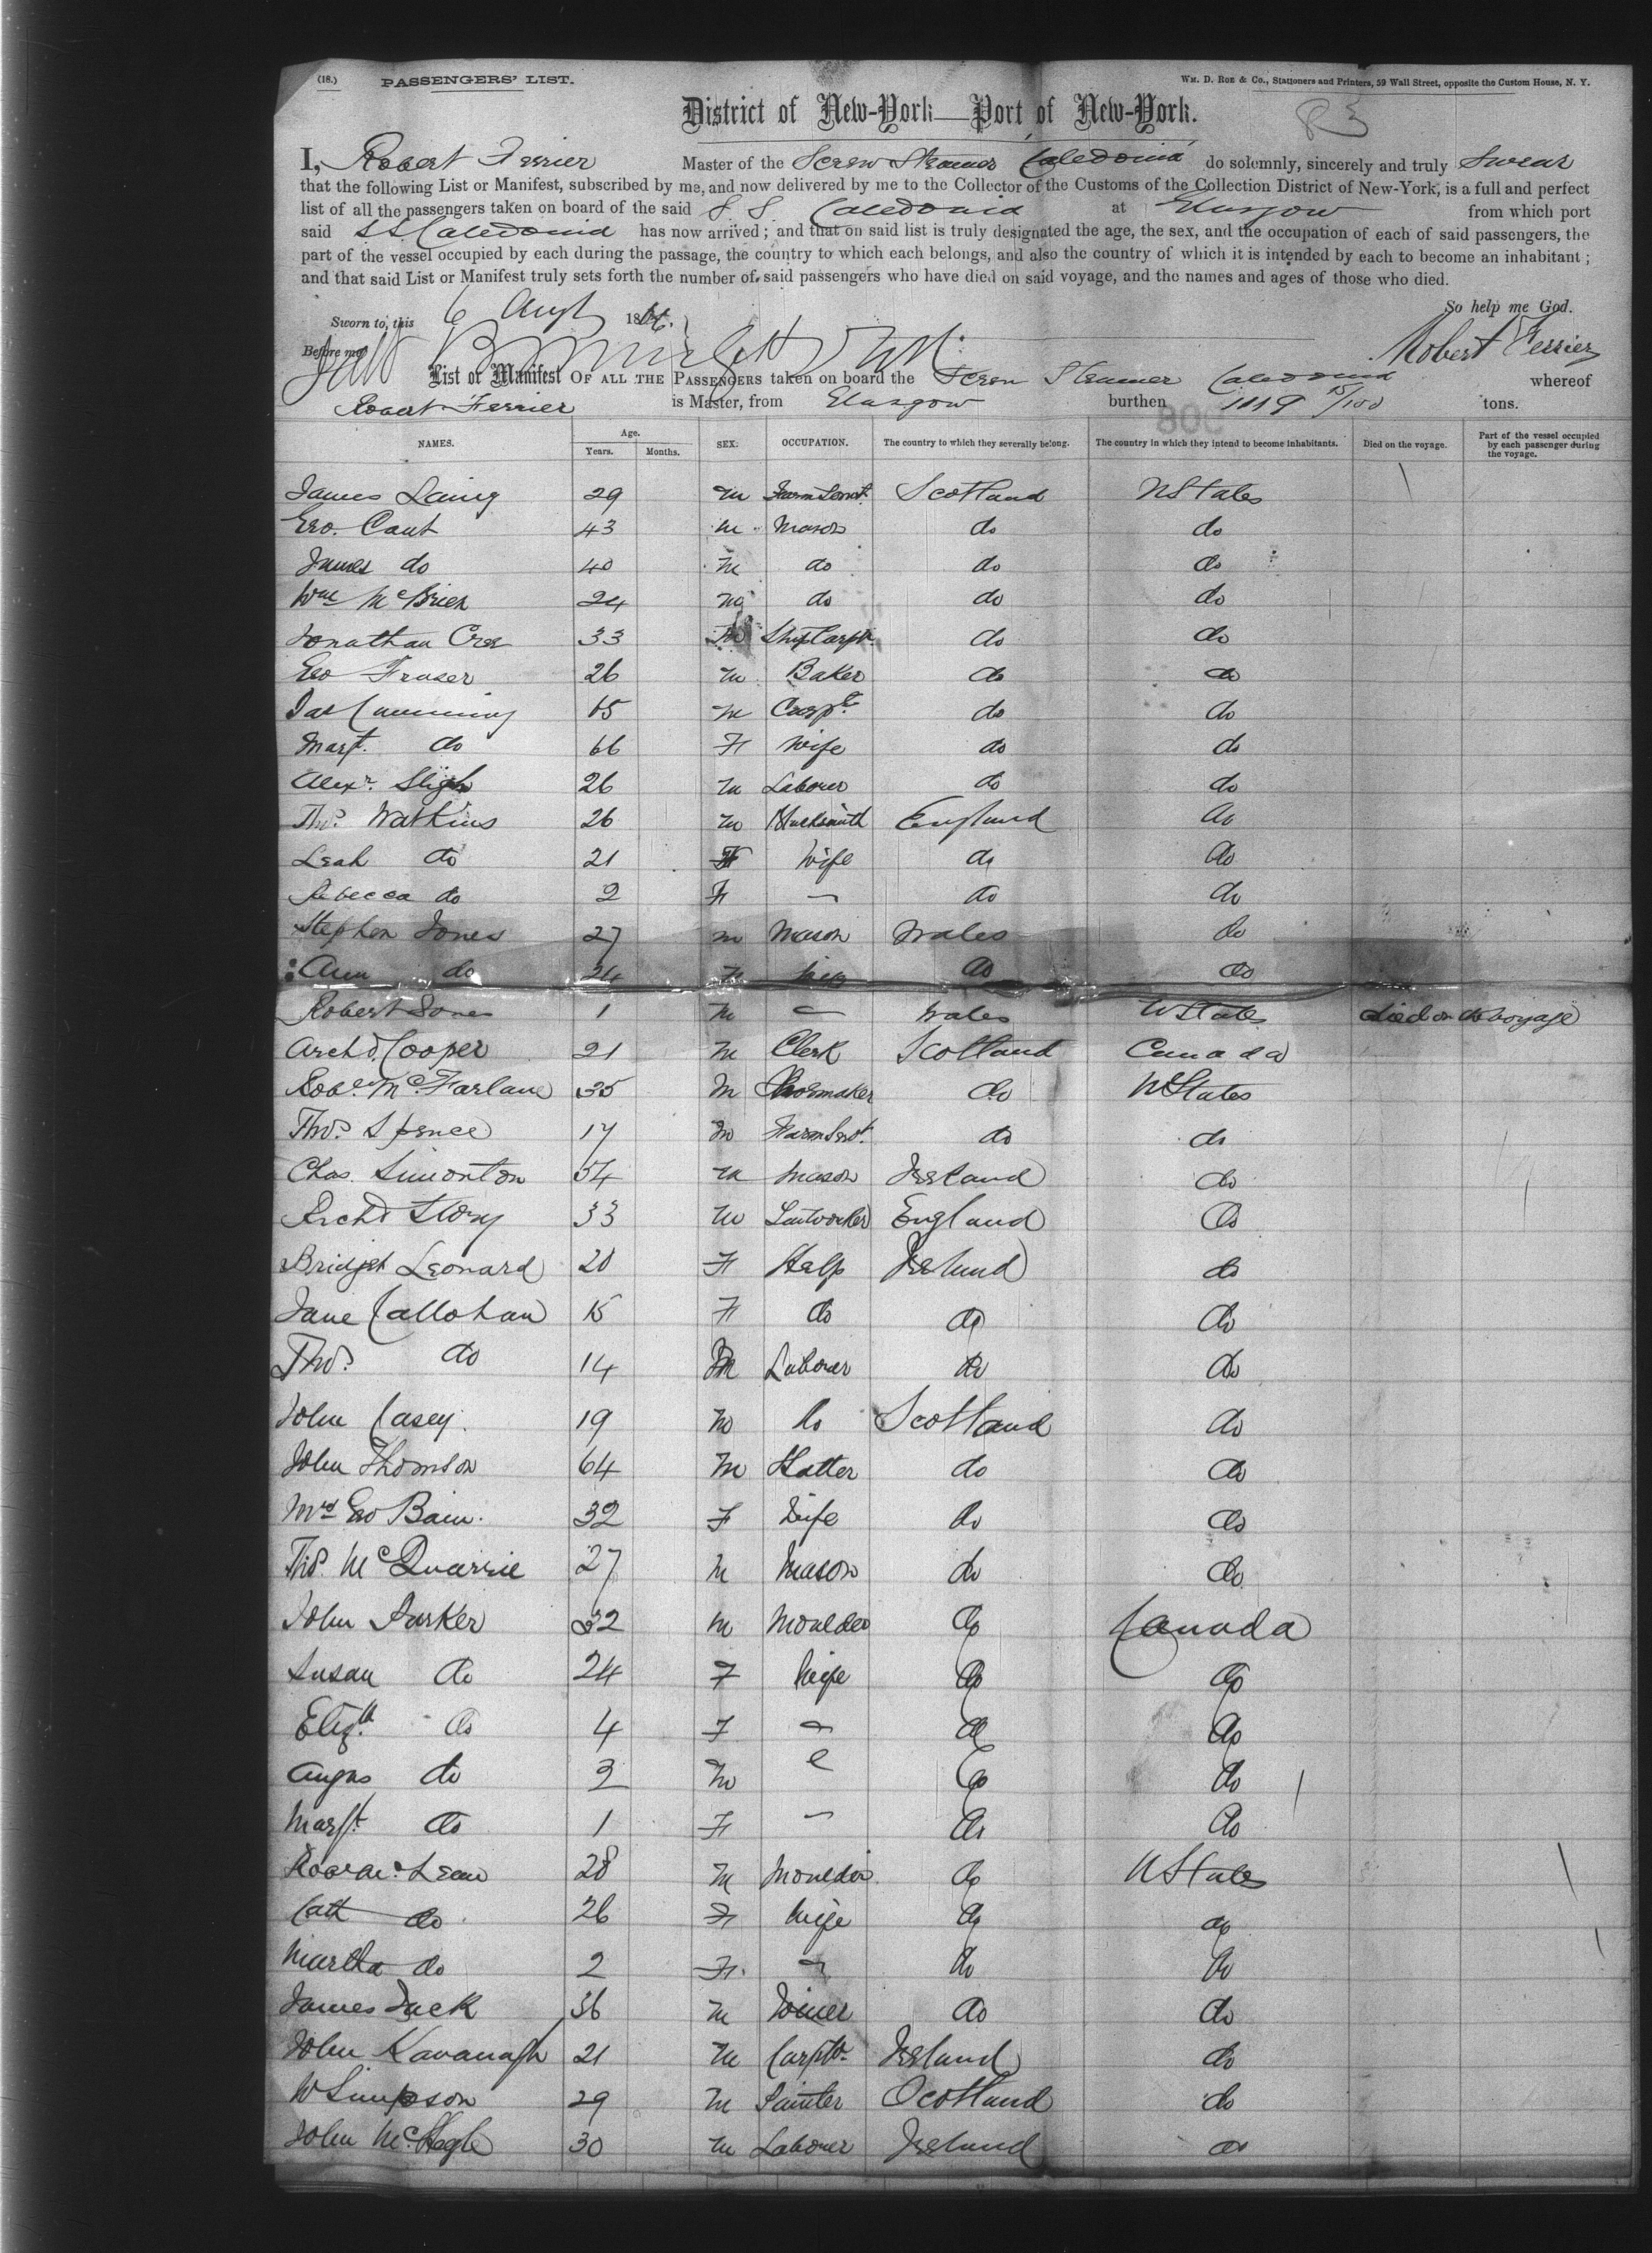 (18.) PASSENGERS' LIST. WM. D. ROE & CO., Stationers and Printers, 59 Wall Street, opposite the Custom House, N. Y.
District of New-York—Port of New-York.
I, Robert Ferrier Master of the Screw Steamer Caledonia do solemnly, sincerely and truly Swear
that the following List or Manifest, subscribed by me, and now delivered by me to the Collector of the Customs of the Collection District of New-York, is a full and perfect
list of all the passengers taken on board of the said S. S. Caledonia at Glasgow from which port
said SS. Caledonia has now arrived; and that on said list is truly designated the age, the sex, and the occupation of each of said passengers, the
part of the vessel occupied by each during the passage, the country to which each belongs, and also the country of which it is intended by each to become an inhabitant;
and that said List or Manifest truly sets forth the number of said passengers who have died on said voyage, and the names and ages of those who died.
So help me God.
Sworn to, this 6 Augt 18
Before me Robert Ferrier
List or Manifest OF ALL THE PASSENGERS taken on board the Screw Steamer Caledonia whereof
Robert Ferrier is Master, from Glasgow burthen 1119 15/100 tons.
NAMES. Age. Years. Months. SEX. OCCUPATION. The country to which they severally belong. The country in which they intend to become inhabitants. Died on the voyage. Part of the vessel occupied by each passenger during the voyage.
James Laing 29 M Farm Servt. Scotland U States
Geo. Cant 43 M Mason do do
James do 40 M do do do
Wm McBrien 24 M do do do
Jonathan 33 M Ship Carptr. do do
Geo Fraser 26 M Baker do do
Jas Cumming 65 M Carptr. do do
Margt. do 66 F Wife do do
Alexr. Sligh 26 M Labourer do do
Thos. Watkins 26 M Blacksmith England do
Leah do 21 F Wife do do
Rebecca do 2 F — do do
Stephen Jones 27 M Mason Wales do
Ann do 24 F Wife do do
Robert Jones 1 M — Wales U States died on the voyage
Archd. Cooper 21 M Clerk Scotland Canada
Robt. McFarlane 35 M Shoemaker do U States
Thos. Spence 17 M Farm Servt. do do
Chas. Simonton 54 M Mason Ireland do
Richd Story 33 M England do
Bridget Leonard 20 F Help Ireland do
Jane Callohan 15 F do do do
Thos. do 14 M Labourer do do
John Casey. 19 M do Scotland do
John Thomson 64 M Hatter do do
Mrs Geo Bain. 32 F Wife do do
Thos. McQuarrie 27 M Mason do do
John Parker 32 M Moulder do Canada
Susan do 24 F Wife do do
Elizth. do 4 F — do do
Angus do 3 M do do
Margt. do 1 F — do do
Robt McLean 28 M Moulder do U States
Cath do 26 F Wife do do
Martha do 2 F. — do do
James Jack 36 M Joiner do do
John Kavanagh 21 M Carptr. Ireland do
W Simpson 29 M Painter Scotland do
John 30 M Labourer Ireland do